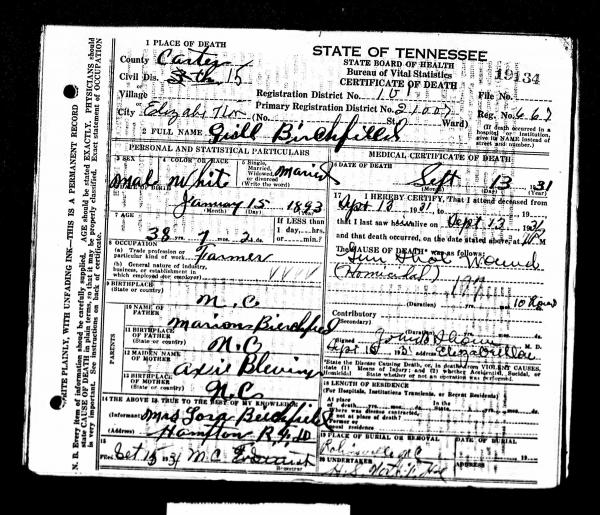 STATE OF TENNESSEE
STATE BOARD OF HEALTH
Bureau of Vital Statistics
CERTIFICATE OF DEATH
1 PLACE OF DEATH
County Carter
Civil Dis. 15
Village
City
Registration District No. 101
Primary Registration District No. 21007
File No. 19134
Reg. No. 667
(No. St. Ward)
(If death occurred in a hospital or institution, give its NAME instead of street and number.)
2 FULL NAME Birchfield
PERSONAL AND STATISTICAL PARTICULARS
3 SEX
male
4 COLOR OR RACE
White
5 Single, Married, Widowed, or divorced (Write the word)
Married
January 15 1893
(Month) (Day)
7 AGE
38 yrs. 7 mos. ds.
If LESS than 1 day, hrs. or min.?
8 OCCUPATION
(a) Trade, profession or particular kind of work Farmer
(b) General nature of industry, business, or establishment in which employed (or employer)
9 BIRTHPLACE
(State or country) N.C
PARENTS
10 NAME OF FATHER
11 BIRTHPLACE OF FATHER
(State or country) N.C
12 MAIDEN NAME OF MOTHER Blevins
13 BIRTHPLACE OF MOTHER
(State or country) N.C
14 THE ABOVE IS TRUE TO THE BEST OF MY KNOWLEDGE
(Informant) Mrs
(Address) Hampton R.F.D
15
Filed Oct 31 M.C.
Registrar
MEDICAL CERTIFICATE OF DEATH
16 DATE OF DEATH
Sept 13 31
(Month) (Day)
17 I HEREBY CERTIFY, That I attend deceased from
Sept 13 1931
that I last saw h alive on Sept 13 1931
and that death occurred, on the date stated above, at M
The CAUSE OF DEATH was as follows:
Gun Shot Wound
(Homicidal)
197
(Duration) yrs. mos. 10 Hours
Contributory
(Secondary)
(Duration) yrs. mos. ds.
Signed M. D.
Sept 15 1931 Address
*State the Disease Causing Death, or, in deaths from VIOLENT CAUSES, state (1) Means of Injury; and (2) whether Accidental, Suicidal, or Homicidal. State whether or not an operation was performed.
18 LENGTH OF RESIDENCE
(For Hospitals, Institutions, Transients, or Recent Residents)
At place of death yrs. mos. ds. State yrs. mos. ds.
Where was disease contracted, if not at place of death?
Former or usual residence
19 PLACE OF BURIAL OR REMOVAL
DATE OF BURIAL
Robbinsville NC 19
20 UNDERTAKER
ADDRESS
WRITE PLAINLY, WITH UNFADING INK—THIS IS A PERMANENT RECORD
N. B. Every item of information should be carefully supplied. AGE should be stated EXACTLY. PHYSICIANS should state CAUSE OF DEATH in plain terms, so that it may be properly classified. Exact statement of OCCUPATION is very important. See instructions on back of certificate.